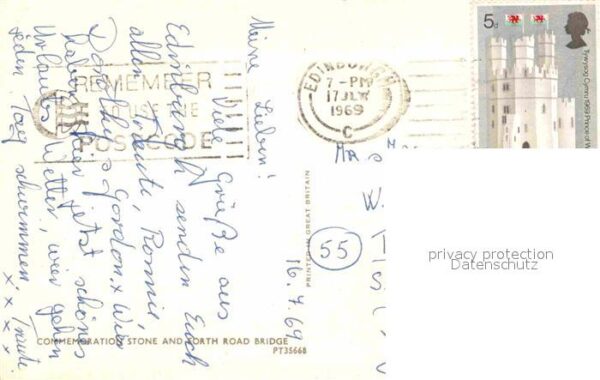 Meine Lieben!
Viele Grüße aus
Edinburgh senden Euch
allen Traute, Ronnie,
Dorothy & Gordon. x Wir
haben hier jetzt schönes
Urlaubs Wetter, wir gehen
jeden Tag schwimmen.
x x x x Traute.
REMEMBER
USE THE
POSTCODE
EDINBURGH
7-PM
17 JLY
1969
C
5d
PRINTED IN GREAT BRITAIN
55
16.7.69
W.
privacy protection
Datenschutz
COMMEMORATION STONE AND FORTH ROAD BRIDGE
PT35668